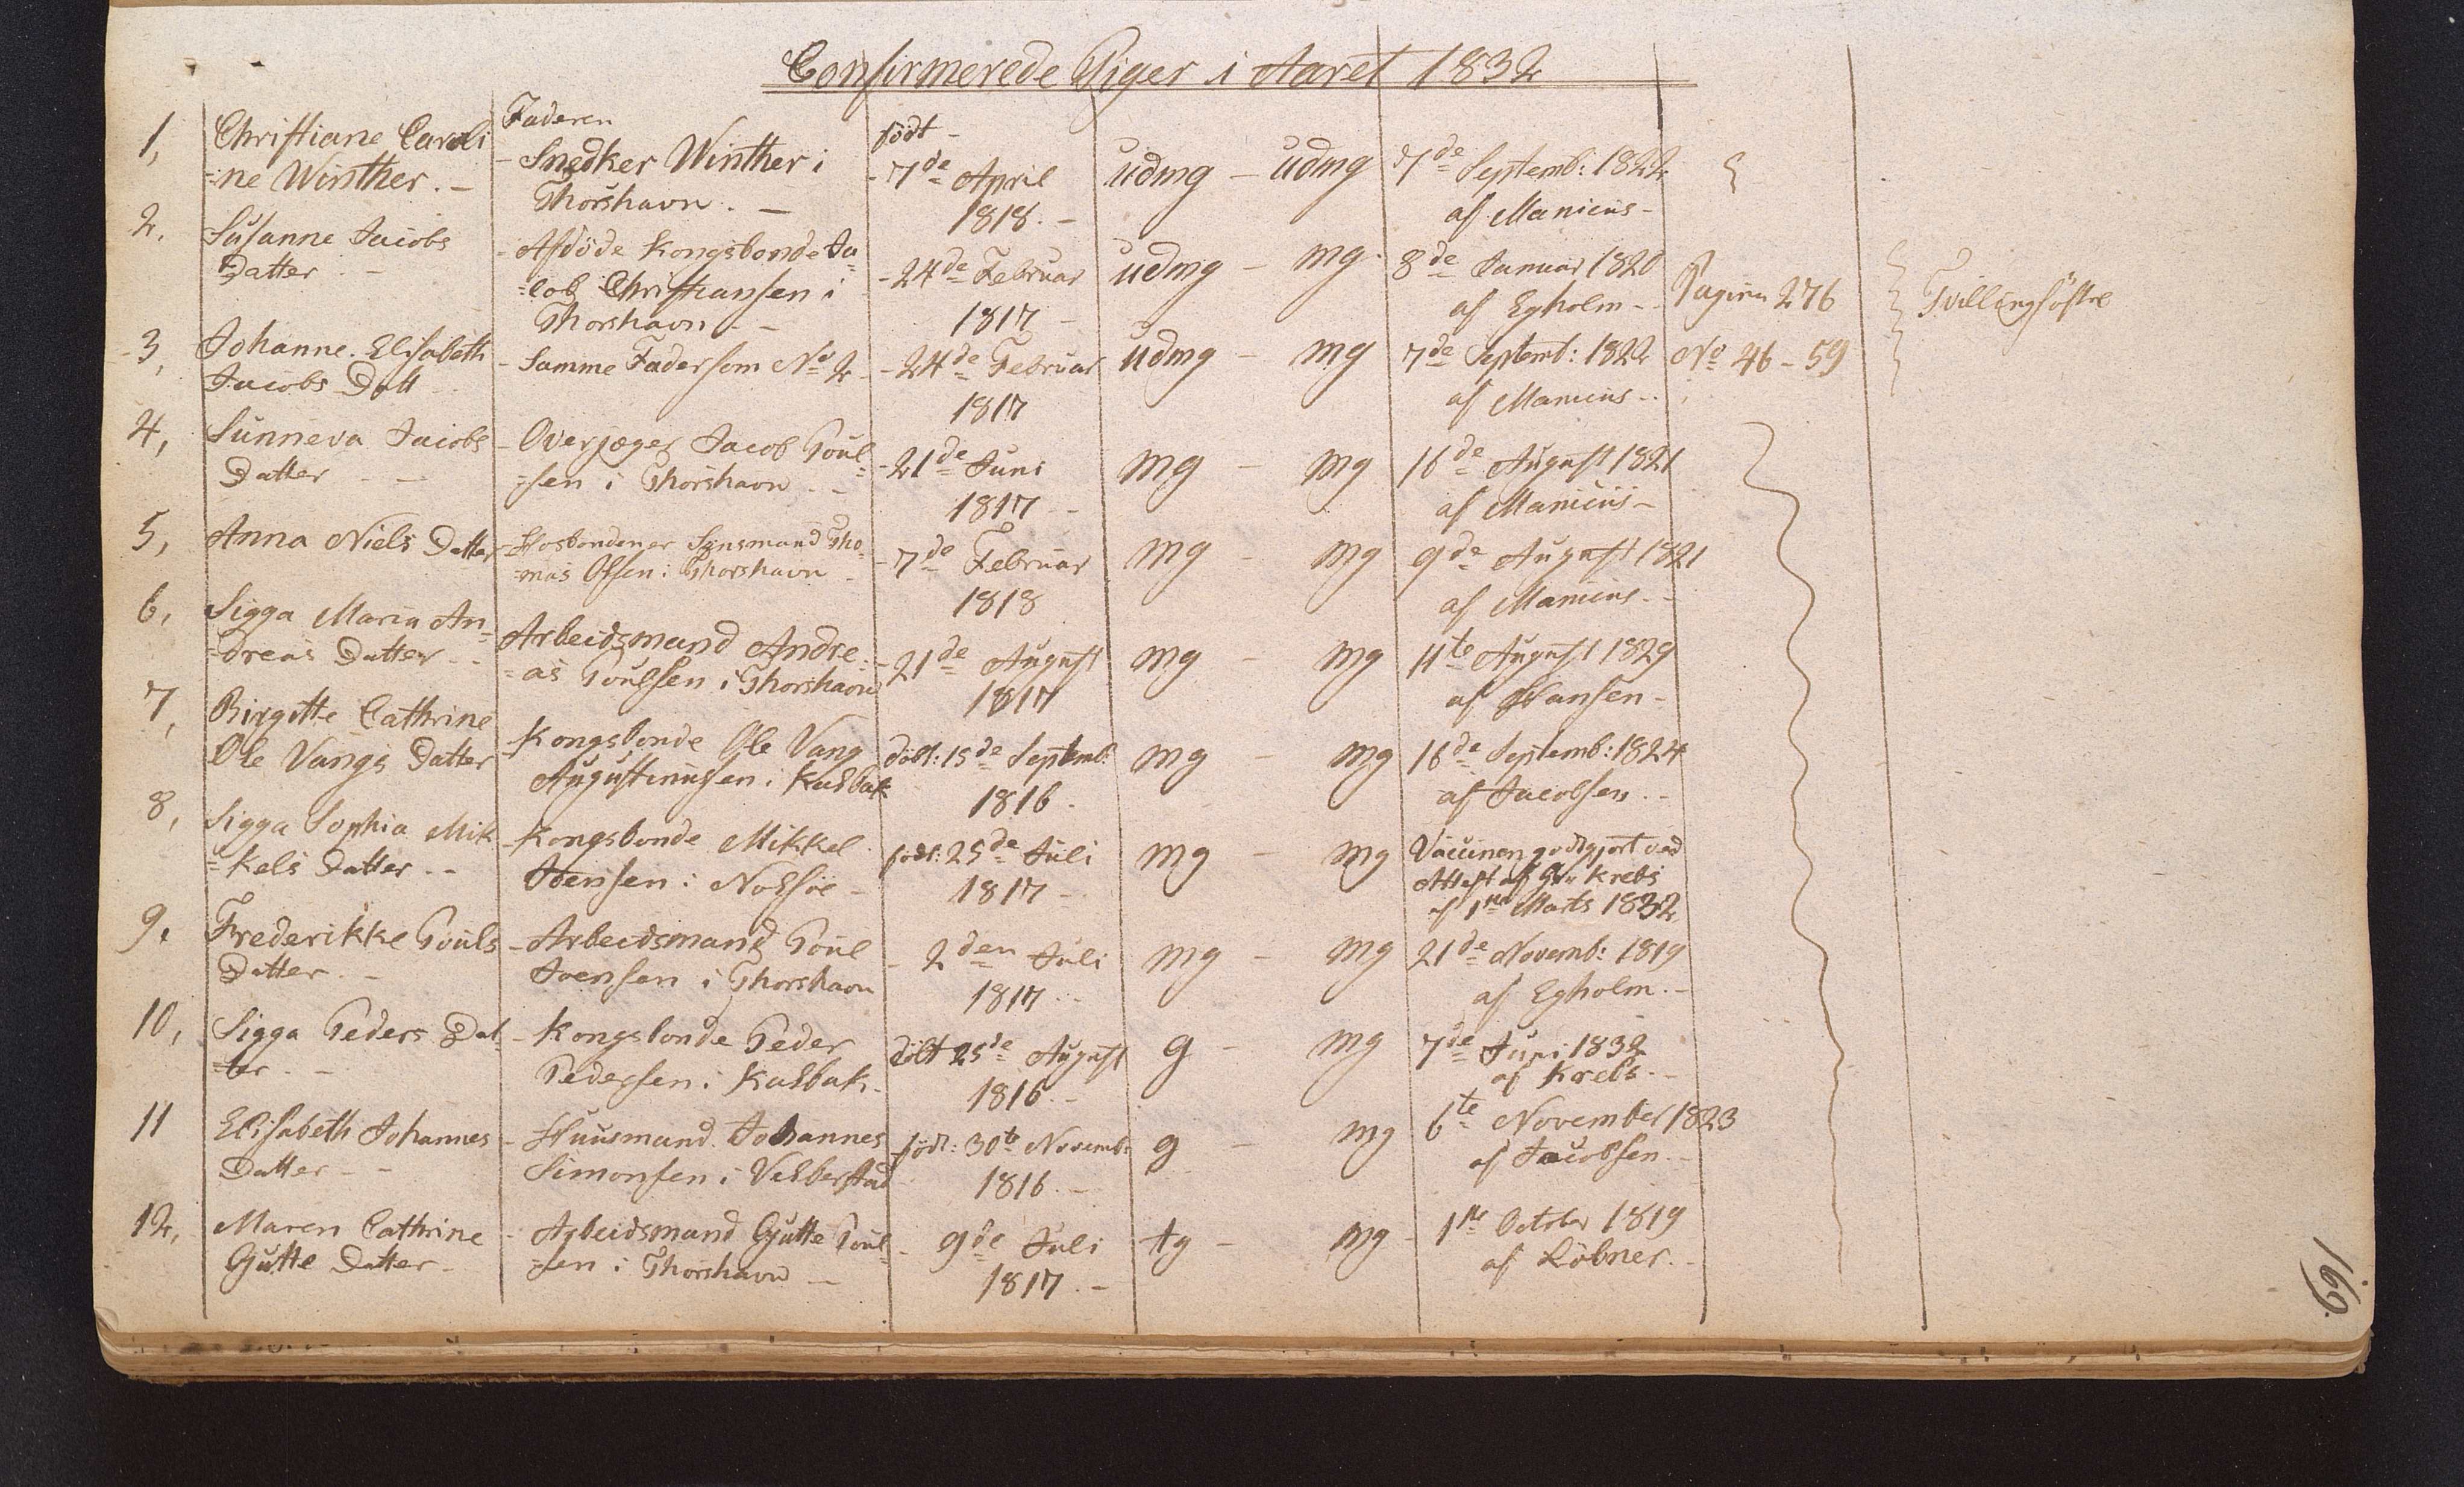 Confirmerede Piger i Aaret 1832
Faderen
født -
1, Christiane Caroli - Snedker Winther i - 7de April udmg - udmg 7de Septemb: 1822
=ne Winther. - Thorshavn. - 1818. - af Manicus -
2. Susanne Jacobs - Afdöde Kongsbonde Ja= - 24de Februar udmg - mg. 8de Januar 1820
Datter - =cob Christiansen i 1817 - af Egholm - Pagina 276 Tvillingsöstre
Thorshavn - -
3, Johanne Elisabeth - Samme Fader som No 2 - 24de Februar udmg - mg 7de Septemb: 1822 No 46 - 59
Jacobs Datt 1817 af Manicus - .
4, Sunneva Jacobs - Overjæger Jacob Poul= - 21de Juni mg - mg 16de August 1821
Datter - - =sen i Thorshavn - - 1817 - af Manicus -
5, Anna Niels Datter - Hosbonden er Synsmand Tho= - 7de Februar mg - mg 9de August 1821
=mas Olsen i Thorshavn - 1818 af Manicus - -
6, Sigga Maria An= Arbeidsmand Andre= - 21de August mg - mg 11te August 1829
=dreas Datter - - =as Poulsen i Thorshavn 1817 af Hansen -
7, Birgitte Cathrine Kongsbonde Ole Vang döbt: 15de Septemb: mg - mg 16de Septemb: 1824
Ole Vangs Datter Augustinussen i Kalbak 1816. af Jacobsen - -
8, Sigga Sophia Mik - Kongsbonde Mikkel født: 25de Juli mg - mg Vaccinen godtgjort ved
=kels Datter - - Joensen i Nolsöe - 1817 - Attest af Krebs
af 1ste Marts 1832
9. Frederikke Pouls - Arbeidsmand Poul - 2den Juli mg - mg 21de Novemb: 1819
Datter. - Joensen i Thorshavn 1817. - af Egholm. -
10, Sigga Peders Dat= - Kongsbonde Peder döbt 25de August g - mg 7de Juni 1832
=ter. - Pedersen i Kalbak. 1816. - af Krebs. -
11 Elisabeth Johannes - Huusmand Johannes født: 30te Novemb: g - mg 6te November 1823
Datter - - Simonsen i Velberstad 1816. - af Jacobsen. -
12, Maren Cathrine - Arbeidsmand Gutte Poul= - 9de Juli tg - mg 1ste October 1819
Gutte Datter - =sen i Thorshavn - 1817. - af Löbner. -
169.